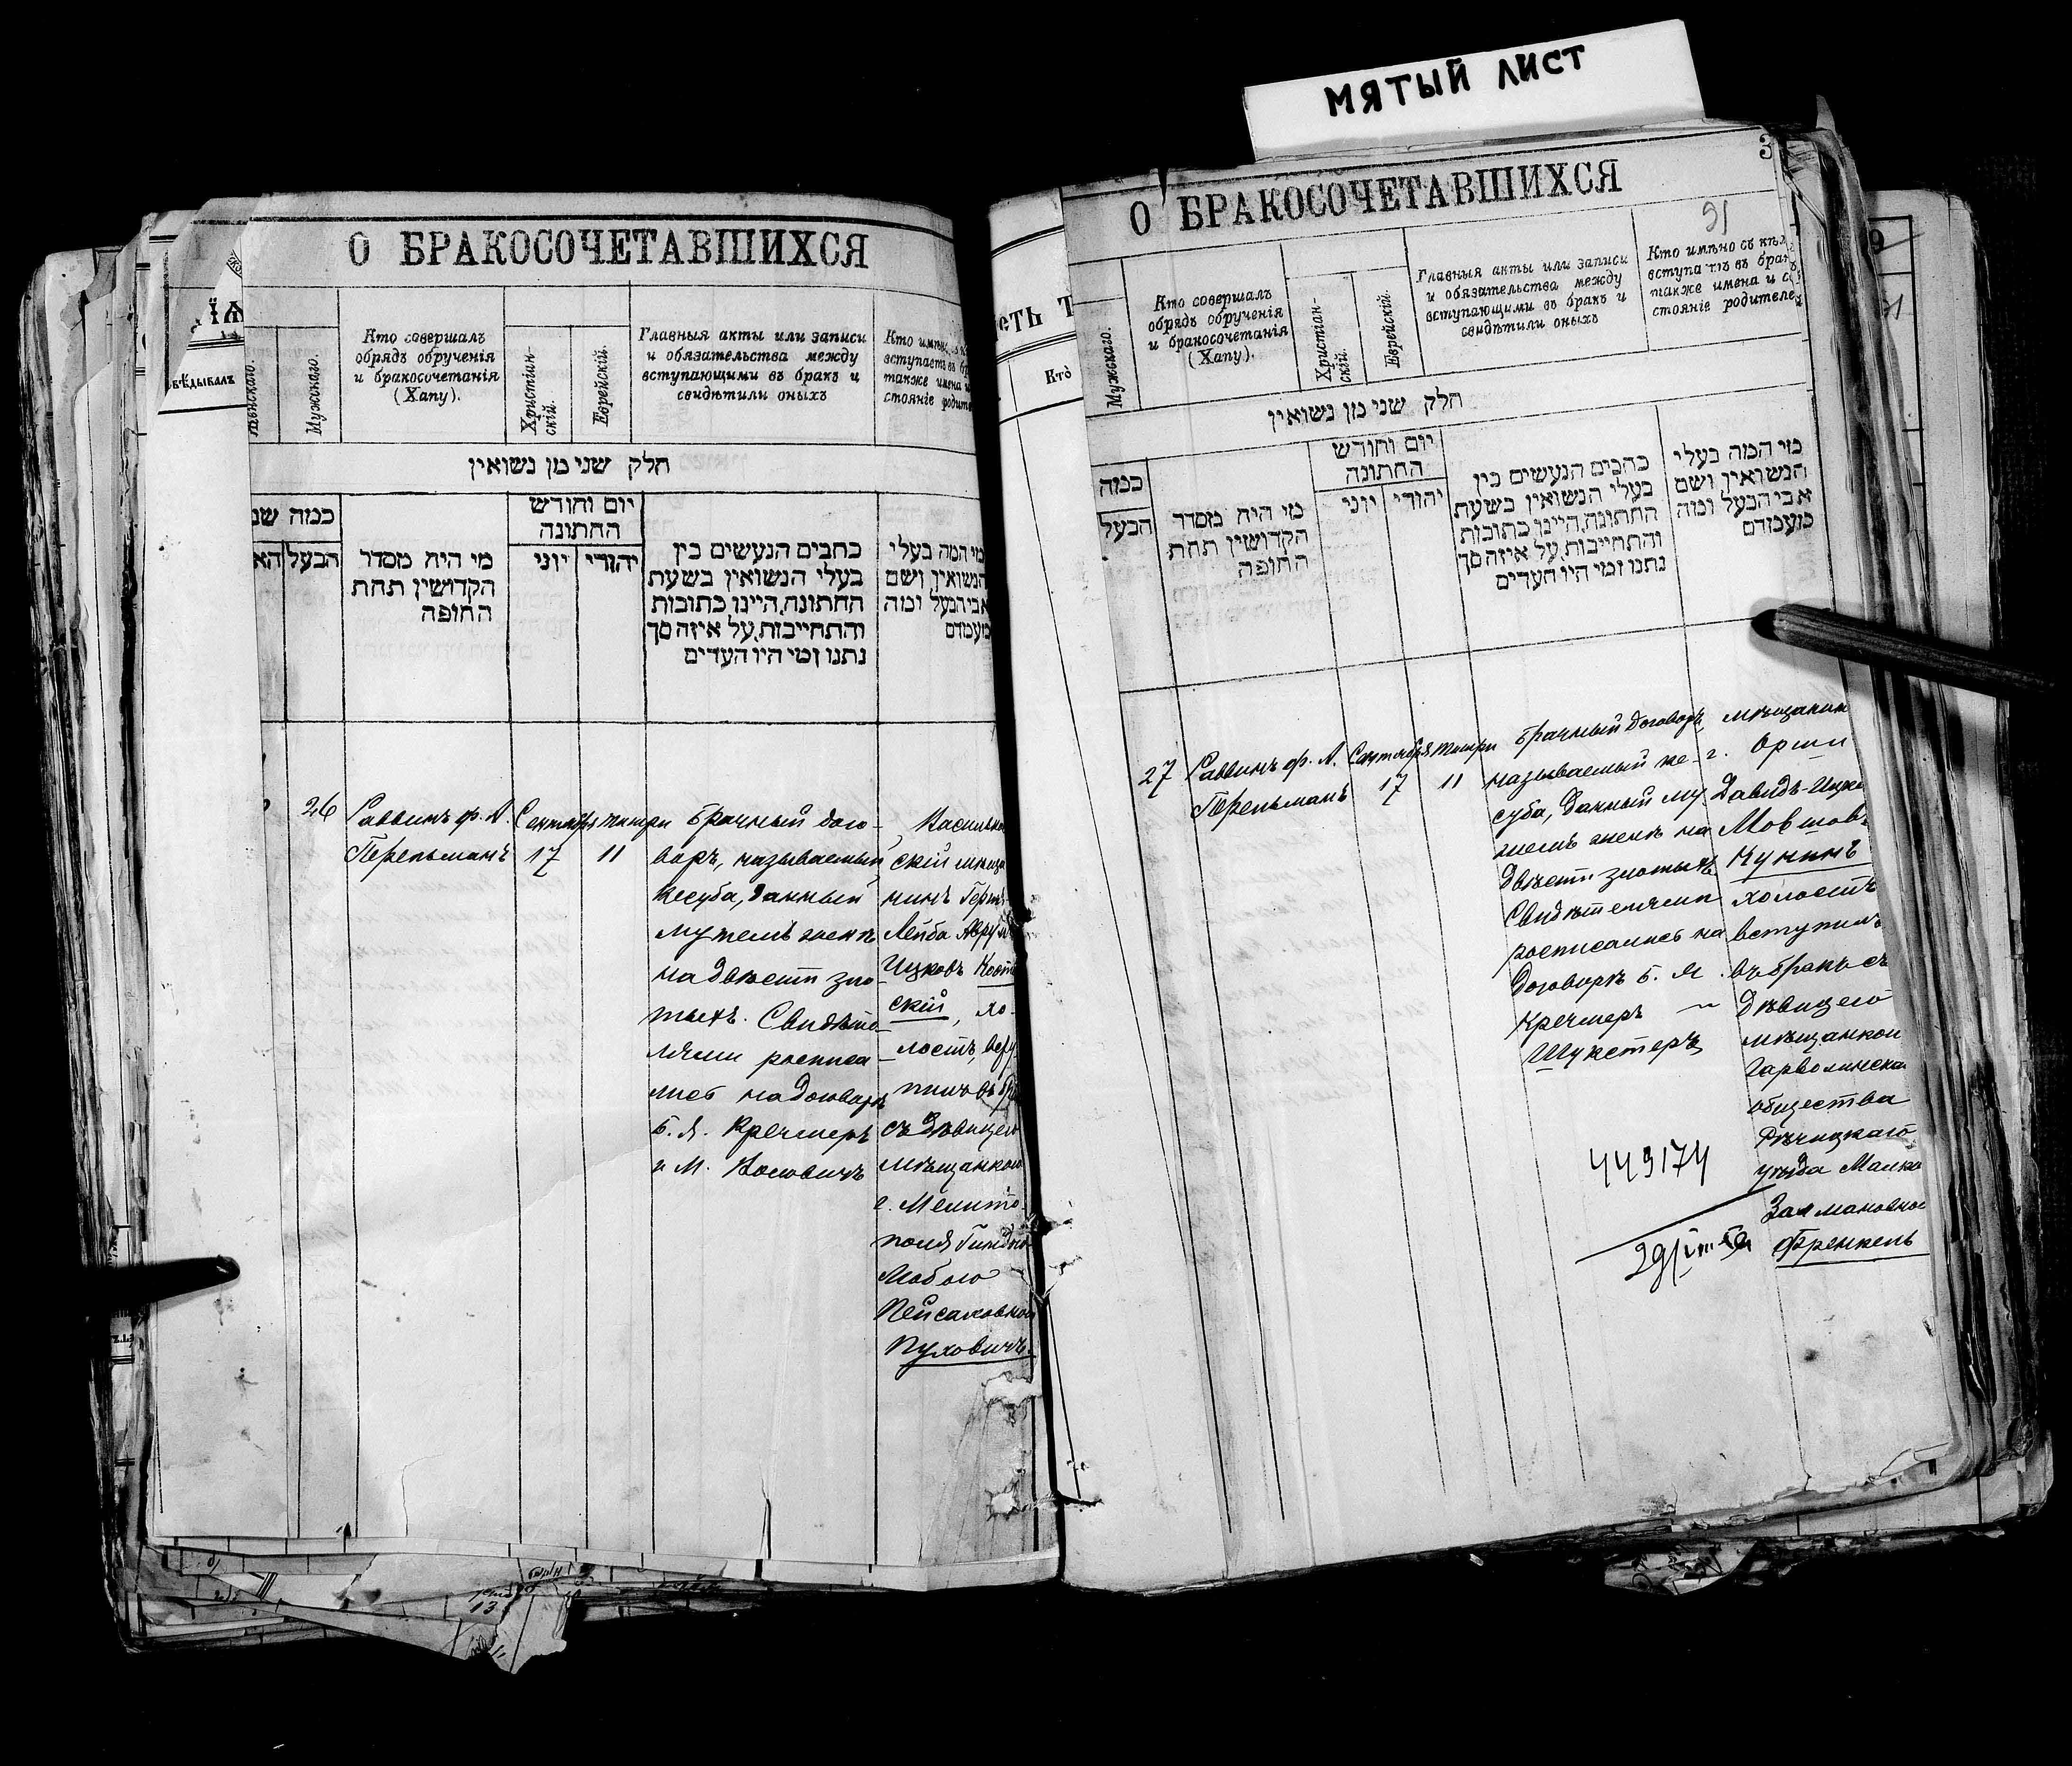 МЯТЫЙ ЛИСТ
О БРАКОСОЧЕТАВШИХСЯ
Мужскаго.
Кто совершалъ
обрядъ обрученія
и бракосочетанія
(Хапу).
Христіан-
скій.
Еврейскій.
Главныя акты или записи
и обязательства между
вступающими въ бракъ и
свидѣтили оныхъ
Кто
вступаетъ въ
также имена и
стояніе
חלק שני מן נשואין
כמה
הבעל
מי היה מסדר
הקדושין תחת
החופה
יום וחודש
החתונה
יוני
יהודי
כתבים הנעשים בין
בעלי הנשואין בשעת
החתונה, היינו כתובות
והתחייבות, על איזה סך
נתנו ומי היו העדים
מי המה בעלי
הנשואין ושם
אבי הבעל ומה
מעמדם
26
Раввинъ ф. А.
Перельманъ
Сентября
17
тишри
11
Брачный дого-
воръ, называемый
Кесуба, данный
мужемъ женѣ
на двѣсти зло-
тыхъ. Свидѣте-
лями росписа-
лись на договорѣ
Б. Я. Кречмеръ
и М.
скій
Лейба
Ицковъ
скій, хо-
лостъ,
съ дѣвицею
мѣщанкою
г. Мелито-
поля
Пейсаховной
Пуховичъ.
О БРАКОСОЧЕТАВШИХСЯ
3
91
Мужскаго.
Кто совершалъ
обрядъ обрученія
и бракосочетанія
(Хапу).
Христіан-
скій.
Еврейскій.
Главныя акты или записи
и обязательства между
вступающими въ бракъ и
свидѣтили оныхъ
Кто имѣно съ
вступа въ
также имена и
стояніе
חלק שני מן נשואין
כמה
הבעל
מי היה מסדר
הקדושין תחת
החופה
יום וחודש
החתונה
יוני
יהודי
כתבים הנעשים בין
בעלי הנשואין בשעת
החתונה, היינו כתובות
והתחייבות, על איזה סך
נתנו ומי היו העדים
מי המה בעלי
הנשואין ושם
אבי הבעל ומה
מעמדם
27
Раввинъ ф. А.
Перельманъ
Сентября
17
тишри
11
Брачный договоръ,
называемый ке-
суба, данный му-
жемъ женѣ на
двѣсти злотыхъ
Свидѣтелями
росписались на
договорѣ Б. Я.
Кречмеръ
Шукстеръ
г. Орши
Давидъ-
Мовшовъ
Кунинъ
холостъ
вступилъ
въ бракъ съ
дѣвицею
мѣщанкой
общества
Рѣчицкаго
уѣзда
Залмановной
Френкель
443174